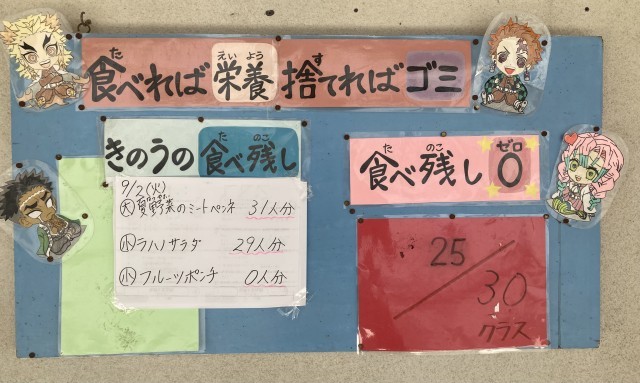 食べれば栄養捨てればゴミ
きのうの食べ残し
9/2(火)
大 夏野菜のミートペンネ 31人分
小 ラハノサラダ 29人分
小 フルーツポンチ 0人分
食べ残し0
25/30
クラス